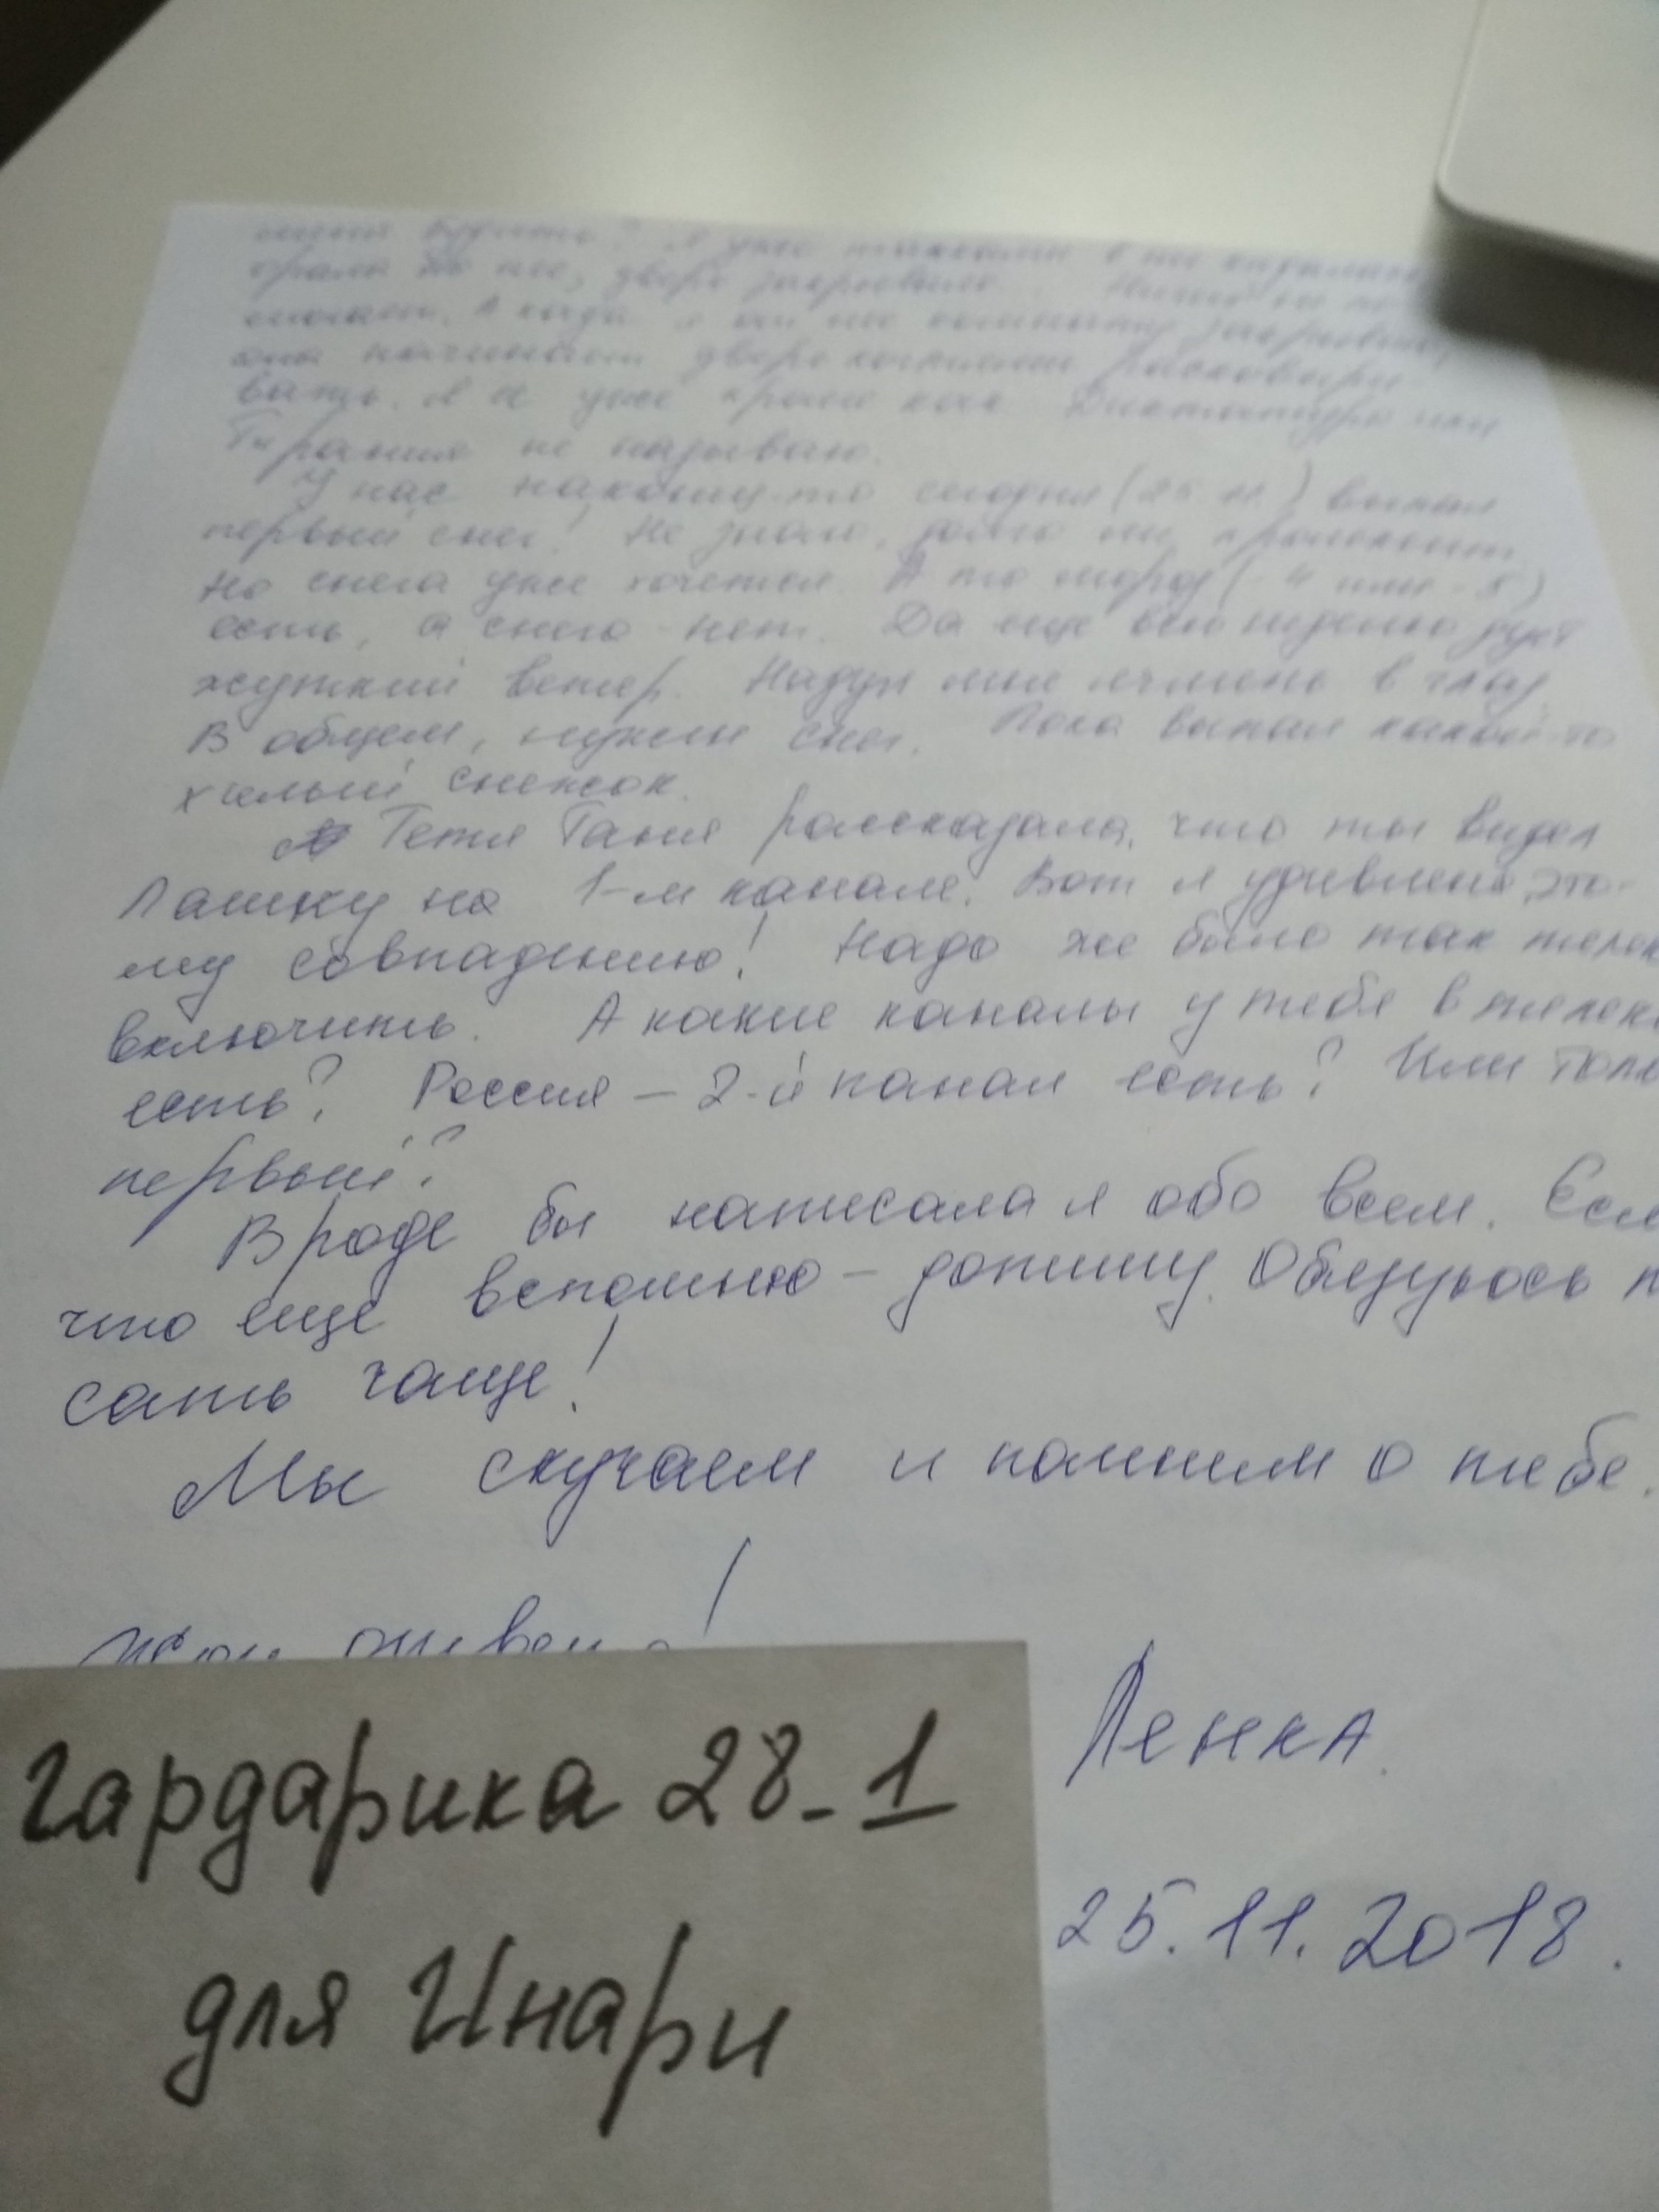 она начинает двери когтями расковыри-
вать. Я её уже кроме как Диктатура или
Тирания не называю.
У нас наконец-то сегодня (25 н.) выпал
первый снег! Не знаю, долго ли пролежит,
но снега уже хочется. А то мороз (-4 или -5)
есть, а снега нет. Да еще всю неделю дует
жуткий ветер. Надул мне ячмень в глаз.
В общем, нужен снег. Пока выпал какой-то
хилый снежок.
Тетя Таня рассказала, что ты видел
Пашку на 1-м канале. Вот я удивлена это-
му совпадению! Надо же было так телек
включить. А какие каналы у тебя в телеке
есть? Россия – 2-й канал есть? Или
первый?
Вроде бы написала я обо всем.
что еще вспомню – допишу. Обязуюсь
сать чаще!
Мы скучаем и помним о тебе.
Жду ответа!
Ленка.
25.11.2018.
Гардарика 28-1
для Инари